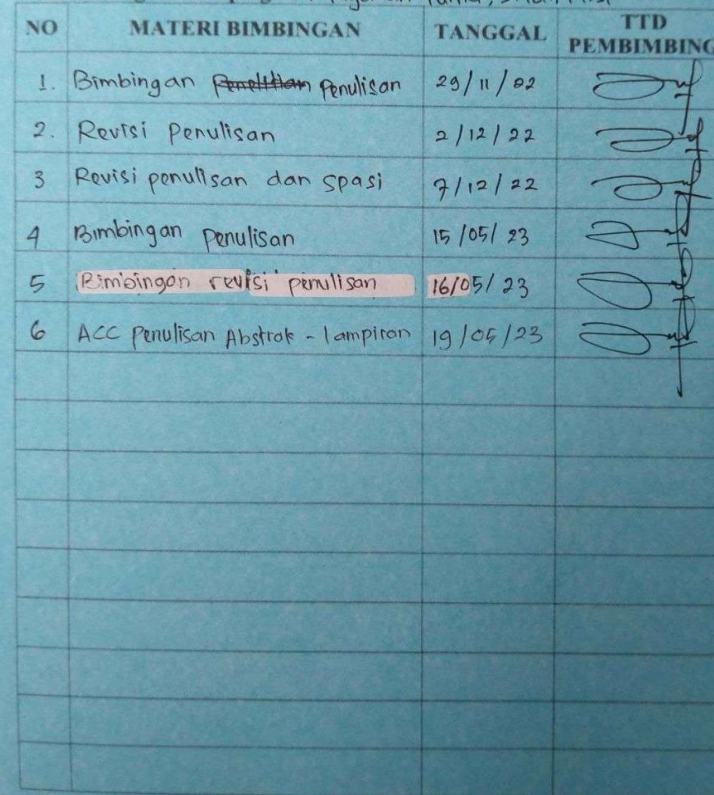 NO MATERI BIMBINGAN TANGGAL TTD PEMBIMBING
1. Bimbingan Penelitian Penulisan 29/11/22
2. Revisi Penulisan 2/12/22
3 Revisi penulisan dan spasi 7/12/22
4 Bimbingan Penulisan 15/05/23
5 Bimbingan revisi penulisan 16/05/23
6 ACC Penulisan Abstrak - lampiran 19/05/23